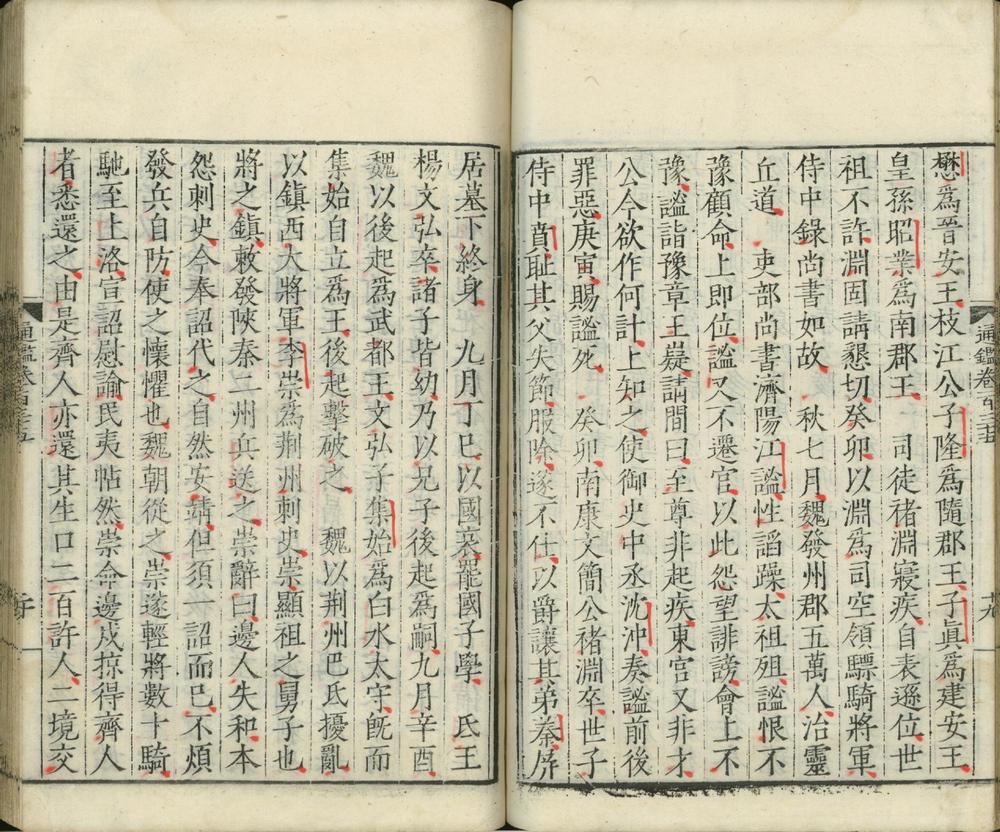 懋爲晉安王枝江公子隆爲隨郡王子眞爲建安王
皇孫昭業爲南郡王　司徒褚淵寢疾自表遜位世
祖不許淵固請懇切癸卯以淵爲司空領驃騎將軍
侍中錄尚書如故　秋七月魏發州郡五萬人治靈
丘道　吏部尚書濟陽江謐性謟躁太祖殂謐恨不
豫顧命上即位謐又不遷官以此怨望誹謗會上不
豫謐詣豫章王嶷請間曰至尊非起疾東宮又非才
公今欲作何計上知之使御史中丞沈沖奏謐前後
罪惡庚寅賜謐死　癸卯南康文簡公褚淵卒世子
侍中賁恥其父失節服除遂不仕以爵讓其弟蓁屏
居墓下終身　九月丁巳以國哀罷國子學　氐王
楊文弘卒諸子皆幼乃以兄子後起爲嗣九月辛酉
魏以後起爲武都王文弘子集始爲白水太守旣而
集始自立爲王後起擊破之　魏以荆州巴氐擾亂
以鎭西大將軍李崇爲荆州刺史崇顯祖之舅子也
將之鎭敕發陝秦二州兵送之崇辭曰邊人失和本
怨刺史今奉詔代之自然安靖但須一詔而已不煩
發兵自防使之懷懼也魏朝從之崇遂輕將數十騎
馳至上洛宣詔慰諭民夷帖然崇命邊戍掠得齊人
者悉還之由是齊人亦還其生口二百許人二境交